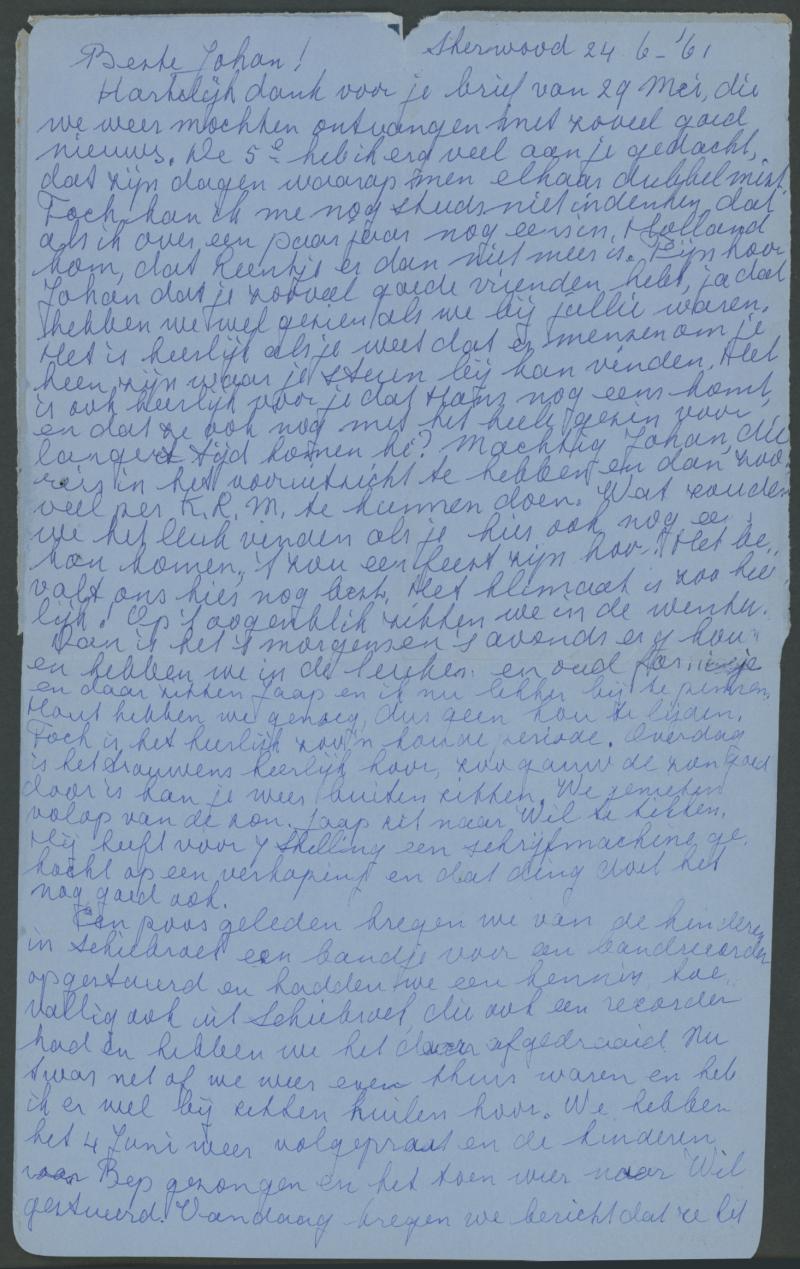 Beste Johan! Sherwood 24 6-'61
Hartelijk dank voor je brief van 29 Mei, die
we weer mochten ontvangen met zoveel goed
nieuws. De 5e heb ik erg veel aan je gedacht,
dat zijn dagen waarop men elkaar dubbel mist.
Toch kan ik me nog steeds niet indenken dat
als ik over een paar jaar nog eens in Holland
kom, dat Reentje er dan niet meer is. Fijn hoor
Johan dat je zooveel goede vrienden hebt, ja dat
hebben we wel gezien als we bij jullie waren.
Het is heerlijk als je weet dat er mensen om je
heen zijn waar je steun bij kan vinden. Het
is ook heerlijk voor je dat Hans nog eens komt
en dat ze ook nog met het heele gezin voor
langere tijd komen hè? Machtig Johan, die
reis in het vooruitzicht te hebben en dan zoo-
veel per K.R.M. te kunnen doen. Wat zouden
we het leuk vinden als je hier ook nog
kon komen, 't zou een feest zijn hoor! Het be-
valt ons hier nog best. Het klimaat is zoo heer
lijk! Op 't oogenblik zitten we in de winter.
Dan is het 's morgens en 's avonds erg kou
en hebben we in de keuken een oud fornuisje
en daar zitten Jaap en ik nu lekker bij te pennen.
Hout hebben we genoeg, dus geen kou te lijden.
Toch is het heerlijk zoo'n koude periode. Overdag
is het trouwens heerlijk hoor, zoo gauw de zon goed
door is kan je weer buiten zitten. We genieten
volop van de zon. Jaap zit naar Wil te tikken.
Hij heeft voor 7 Shilling een schrijfmachine ge-
kocht op een verkoping en dat ding doet het
nog goed ook.
Een poos geleden kregen we van de kinderen
in Schiebroek een bandje voor een bandrecorder
opgestuurd en hadden we een kennis, toe-
vallig ook uit Schiebroek die ook een recorder
had en hebben we het daar afgedraaid. Nu
't was net of we weer even thuis waren en heb
ik er wel bij zitten huilen hoor. We hebben
het 4 Juni weer volgepraat en de kinderen
voor Bep gezongen en het toen weer naar Wil
gestuurd. Vandaag kregen we bericht dat ze het